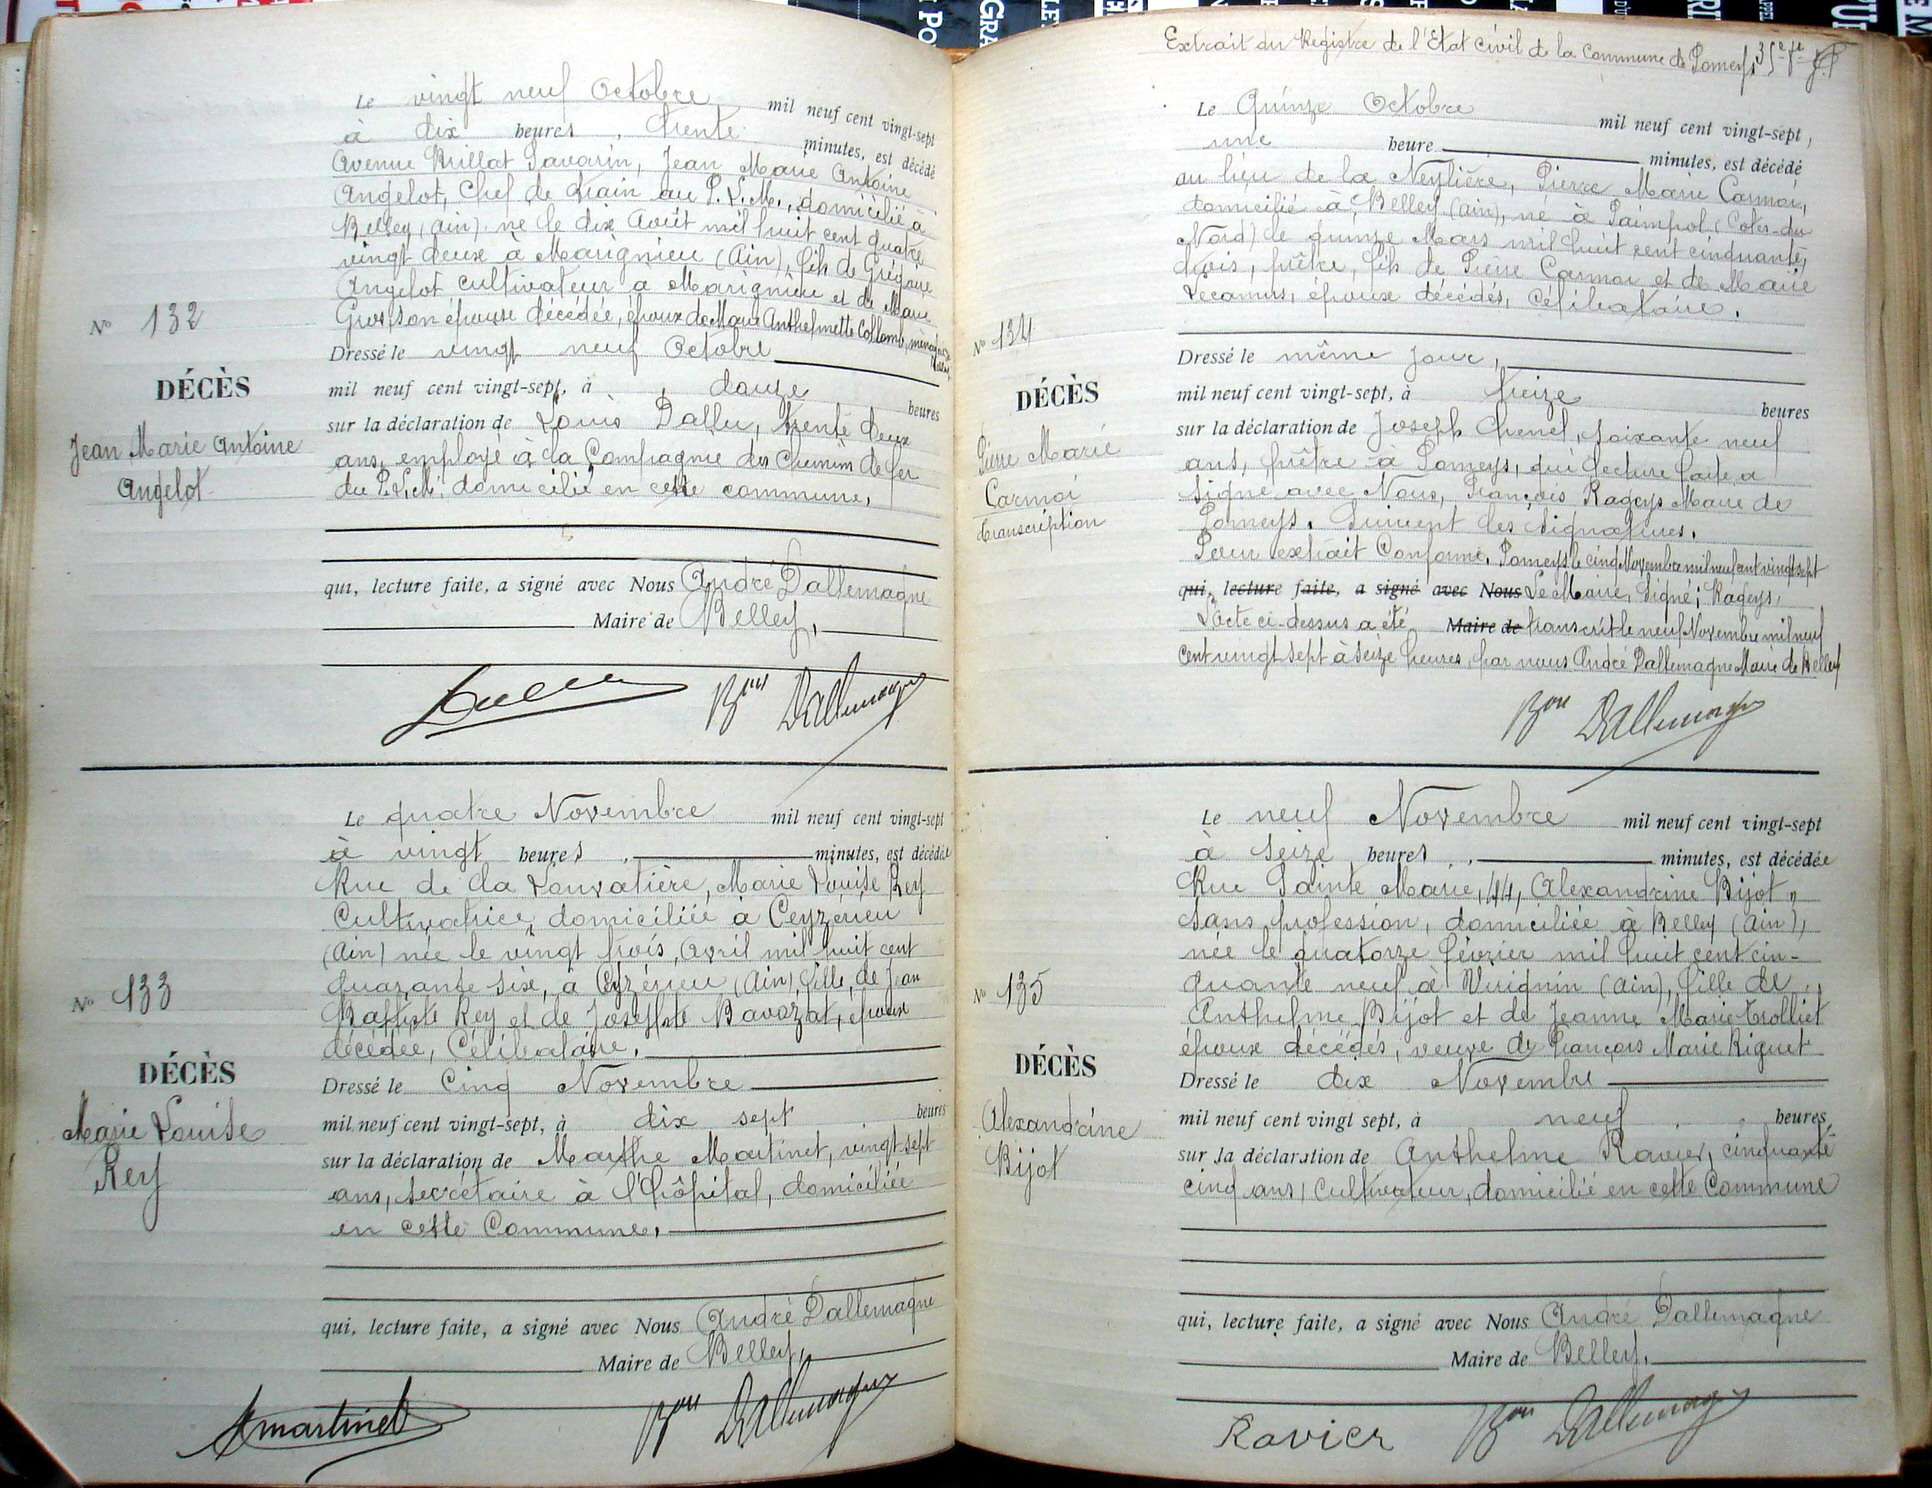 Le vingt neuf Octobre mil neuf cent vingt-sept
à dix heures, trente minutes, est décédé
Avenue Brillat Savarin, Jean Marie Antoine
Angelot, Chef de train au P.L.M., domicilié à
Belley (Ain) né le dix Août mil huit cent quatre
vingt deux à Marignieu (Ain), fils de Grégoire
Angelot cultivateur à Marignieu et de Marie
son épouse décédée, époux de Marie Anthelmette Collomb,
Dressé le vingt neuf Octobre
mil neuf cent vingt-sept, à douze heures
sur la déclaration de Louis Dallu, trente deux
ans, employé à la Compagnie des Chemins de fer
du P.L.M. domicilié en cette commune,
qui, lecture faite, a signé avec Nous André Dallemagne
Maire de Belley,
Bon Dallemagne
No 132
DÉCÈS
Jean Marie Antoine
Angelot
Le quatre Novembre mil neuf cent vingt-sept
à vingt heures, minutes, est décédée
Rue de la Louvatière, Marie Louise Rey
Cultivatrice, domiciliée à Ceyzérieu
(Ain) née le vingt trois, Avril mil huit cent
quarante six, à Ceyzérieu (Ain), fille, de Jean
Baptiste Rey et de Josephte Bavozat, époux
décédée, Célibataire,
Dressé le Cinq Novembre
mil neuf cent vingt-sept, à dix sept heures
sur la déclaration de Marthe Martinet, vingt sept
ans, secrétaire à l'hôpital, domiciliée
en cette Commune,
qui, lecture faite, a signé avec Nous André Dallemagne
Maire de Belley,
Martinet Bon Dallemagne
No 133
DÉCÈS
Marie Louise
Rey
Extrait du Registre de l'Etat civil de la Commune de Pomeys
Le Quinze Octobre mil neuf cent vingt-sept,
une heure minutes, est décédé
au lieu de la Neylière, Pierre Marie Carmoi,
domicilié à Belley (Ain), né à Paimpol (Côtes-du
Nord) le quinze Mars mil huit cent cinquante,
trois, prêtre, fils de Pierre Carmoi et de Marie
époux décédés, Célibataire.
Dressé le même jour,
mil neuf cent vingt-sept, à treize heures
sur la déclaration de Joseph Chenel, soixante neuf
ans, prêtre à Pomeys, qui lecture faite a
signé avec Nous, François Rageys Maire de
Pomeys. Suivent les signatures.
Pour extrait Conforme. Pomeys le cinq Novembre mil neuf cent vingt sept
qui, lecture faite, a signé avec Nous Le Maire, Signé: Rageys,
L'acte ci-dessus a été Maire de transcrit le neuf Novembre mil neuf
cent vingt sept à seize heures, par nous André Dallemagne Maire de Belley
Bon Dallemagne
No 134
DÉCÈS
Pierre Marie
Carmoi
transcription
Le neuf Novembre mil neuf cent vingt-sept
à seize heures, minutes, est décédée
Rue Sainte Marie, 44, Alexandrine Bijot,
sans profession, domiciliée à Belley (Ain),
née le quatorze février mil huit cent cin-
quante neuf à Virignin (Ain), fille de
Anthelme Bijot et de Jeanne Marie Trolliet
époux décédés, veuve de François Marie Riguet
Dressé le dix Novembre
mil neuf cent vingt sept, à neuf heures,
sur la déclaration de Anthelme Ravier, cinquante
cinq ans, Cultivateur, domicilié en cette Commune
qui, lecture faite, a signé avec Nous André Dallemagne
Maire de Belley,
Ravier Bon Dallemagne
No 135
DÉCÈS
Alexandrine
Bijot